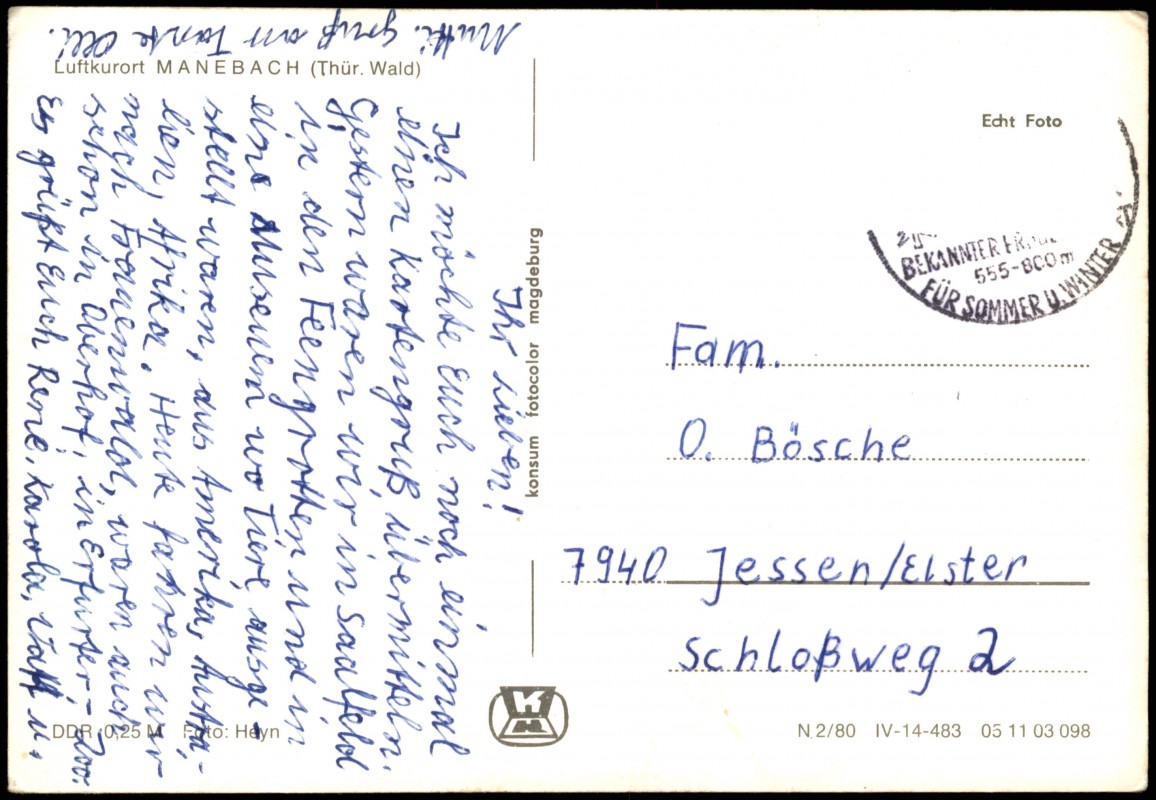 Luftkurort MANEBACH (Thür. Wald)
Ihr Lieben!
Ich möchte Euch noch einmal
einen Kartengruß übermitteln.
Gestern waren wir in Saalfeld
in den Feengrotten und in
eine Museum wo Tiere ausge-
stellt waren, aus Amerika, Austra-
lien, Afrika. Heute fahren wir
nach Frauenwald, waren auch
schon in Oberhof, in Erfurter-Zoo.
Es grüßt Euch René, Karola, Vatti u.
Mutti. Gruß an Tante Olli.
konsum fotocolor magdeburg
DDR 0,25 M Foto: Heyn
Echt Foto
BEKANNTER
555-800m
FÜR SOMMER U. WINTER
Fam.
O. Bösche
7940 Jessen/Elster
Schloßweg 2
N 2/80 IV-14-483 05 11 03 098